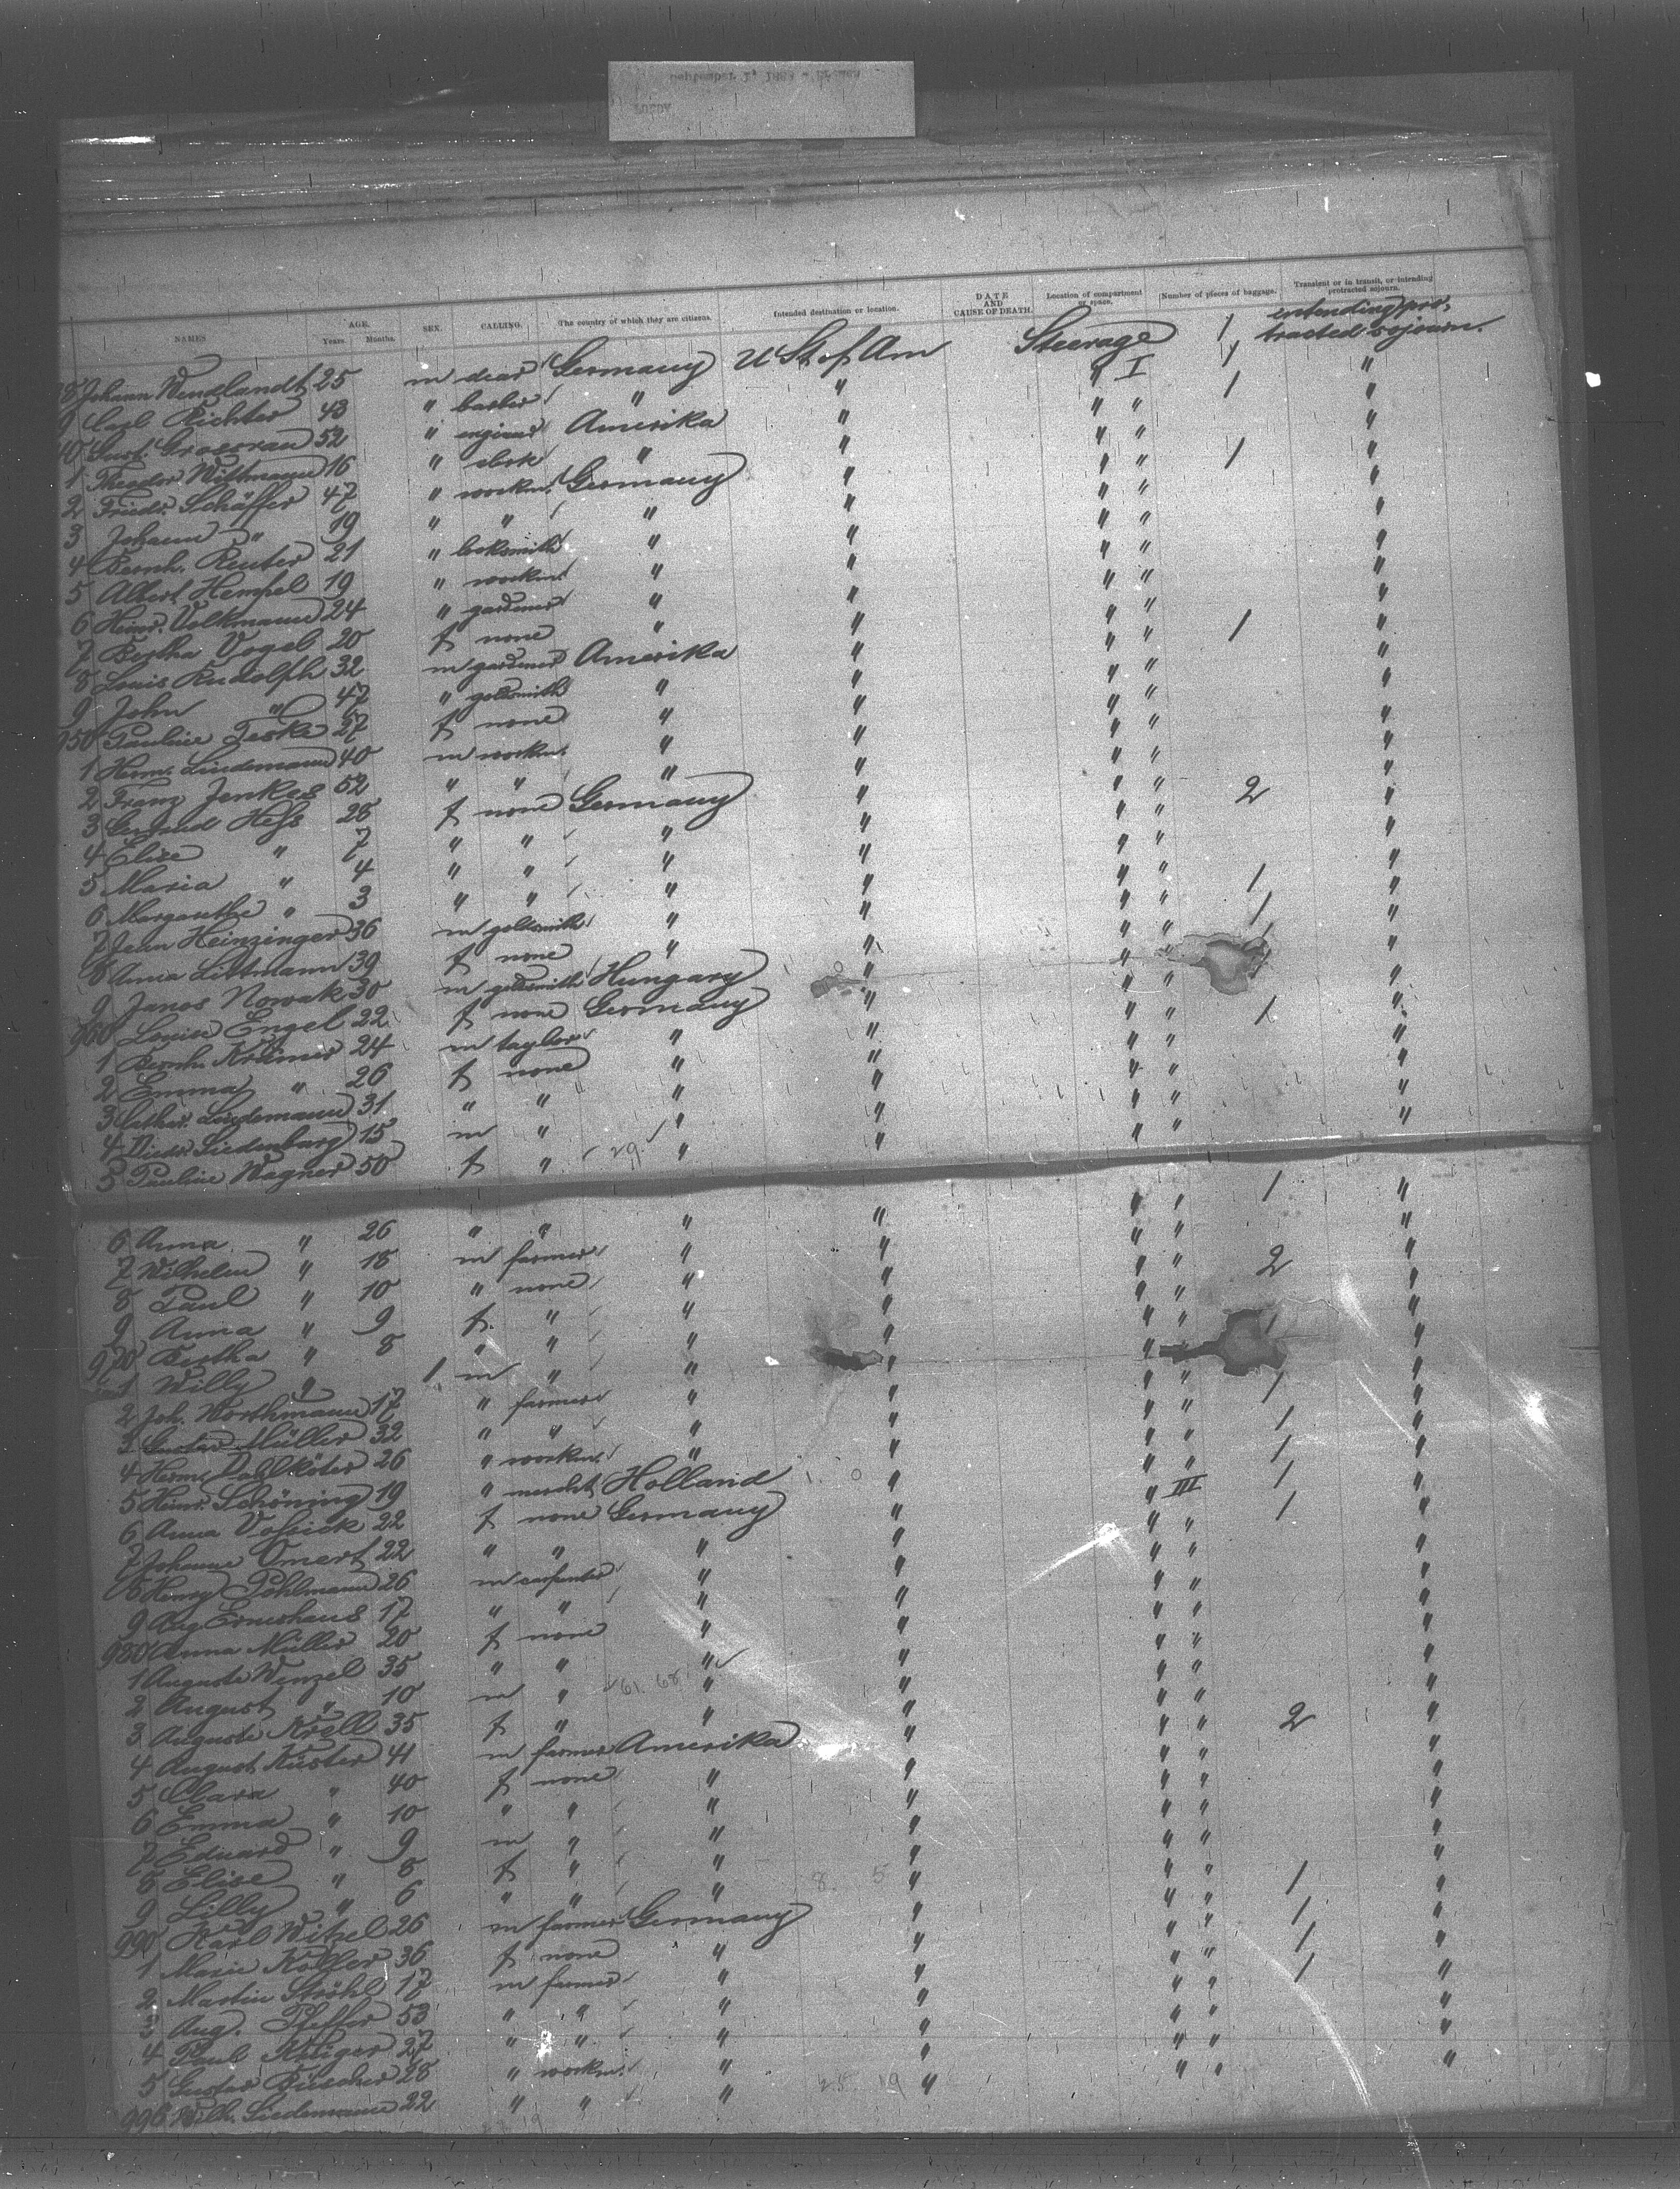 NAMES AGE. Years. Months. SEX. CALLING. The country of which they are citizens. Intended destination or location. DATE AND CAUSE OF DEATH. Location of compartment or space. Number of pieces of baggage. Transient or in transit, or intending protracted sojourn.
8 Johann Wendlandt 25 m Germany U St of Am Steerage I 1 intending protracted sojourn.
9 Carl Richter 43 " barber " " " " 1 "
40 Gust. 52 " Amerika " " " "
1 Theodor Wittmann 16 " " " " " 1 "
2 Friedr. Schäffer 47 " workm. Germany " " " "
3 Johann " 19 " " " " " " "
4 Bernh. Reuter 21 " locksmith " " " " "
5 Albert Hempel 19 " workm. " " " " "
6 Heinr. Volkmann 24 " gardener " " " " "
7 Bertha Vogel 20 f none " " " " 1 "
8 Louis Rudolph 32 m gardener Amerika " " " "
9 John " 47 " goldsmith " " " " "
950 Pauline Teske 27 f none " " " " "
1 Herm. Lindemann 40 m workm. " " " " "
2 Franz Jenkes 52 " " " " " " "
3 Hess 28 f none Germany " " " 2 "
4 Elise " 7 " " " " " " "
5 Maria " 4 " " " " " " "
6 Margarethe " 3 " " " " " " 1 "
7 Jean Heinzinger 36 m goldsmith " " " " 1 "
8 Anna Littmann 39 f none " " " " "
9 Janos Nowak 30 m goldsmith Hungary " " " "
960 Louise Engel 22 f none Germany " " " 1 "
1 Bernh. Krämer 24 m taylor " " " " "
2 Emma " 26 f none " " " " "
3 Cathar. Lindemann 31 " " " " " " "
4 Dieder. Siedenburg 15 m " " " " " "
5 Pauline Wagner 50 f " " " " " 1 "
6 Anna " 26 " " " " " " "
7 Wilhelm " 18 m farmer " " " " 2 "
8 Paul " 10 " none " " " " "
9 Anna " 9 f. " " " " " "
970 Bertha " 8 " " " " " " "
1 Willy " 1 m " " " " " "
2 Joh. Northmann 17 " farmer " " " " 1 "
3 Gustav Müller 32 " " " " " " 1 "
4 Herm. Dahlköter 26 " workm. " " " " 1 "
5 Heinr. Schöning 19 " mercht Holland " " III 1 "
6 Anna 22 f none Germany " " " 1 "
7 Johanne Omert 22 " " " " " " "
8 Henry Pöhlmann 26 m carpenter " " " " "
9 Aug. 17 " " " " " " "
980 Anna Müller 20 f none " " " " "
1 Auguste Wenzel 35 " " " " " " "
2 August " 10 m " " " " " "
3 Auguste Krell 35 f " " " " " "
4 August Küster 41 m farmer Amerika " " " 2 "
5 Clara " 40 f none " " " " "
6 Emma " 10 " " " " " " "
7 Eduard " 9 m " " " " " "
8 Elise " 8 f " " " " " "
9 Lilly " 6 " " " " " " "
990 Karl Witzel 26 m farmer Germany " " " 1 "
1 Marie Koller 36 f none " " " " 1 "
2 Martin Ströhl 17 m farmer " " " " 1 "
3 Aug. Pfeffer 53 " " " " " " 1 "
4 Paul Krüger 27 " " " " " " "
5 Gustav 28 " workm. " " " " "
996 Wilh. Lindemann 22 " " " " " " "